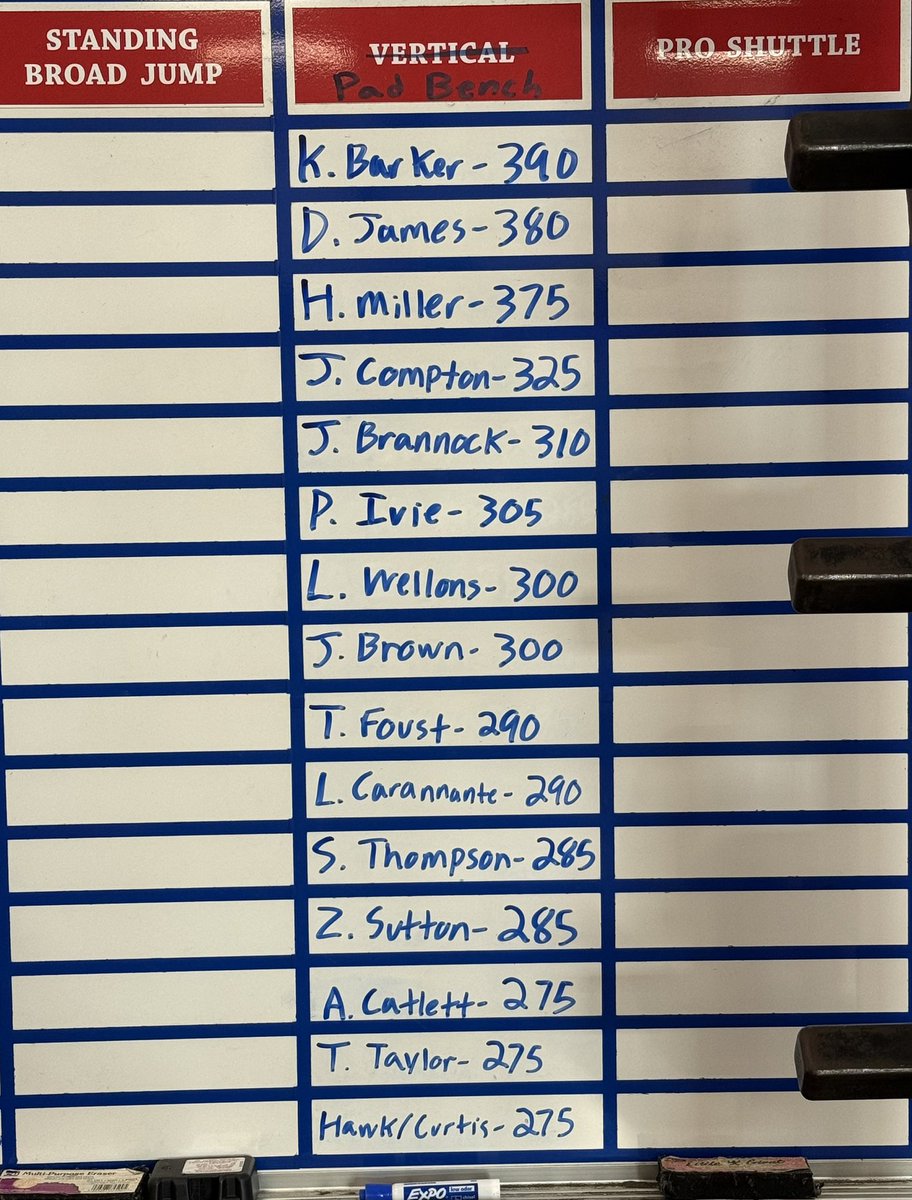 STANDING
BROAD JUMP
VERTICAL
Pad Bench
PRO SHUTTLE
K. Barker - 390
D. James - 380
H. Miller - 375
J. Compton - 325
J. Brannock - 310
P. Ivie - 305
L. Wellons - 300
J. Brown - 300
T. Foust - 290
L. Carannante - 290
S. Thompson - 285
Z. Sutton - 285
A. Catlett - 275
T. Taylor - 275
Hawk/Curtis - 275
Multi-Purpose Eraser
EXPO low odor